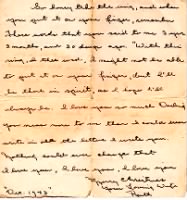 So honey take this ring, and when
you put it on your finger, remember
those words that you said to me 3 yrs.
3 months, and 20 days ago. "With this
ring, I wed. I might not be able
to put it on your finger, but I'll
be there in spirit, as I hope I'll
always be. I love you so much Darling
you mean more to me than I could ever
write in all the letters I write you.
Nothing could ever change that
I love you, I love you, I love you
Merry Christmas
Your Loving Wife
"Dec. 1943"